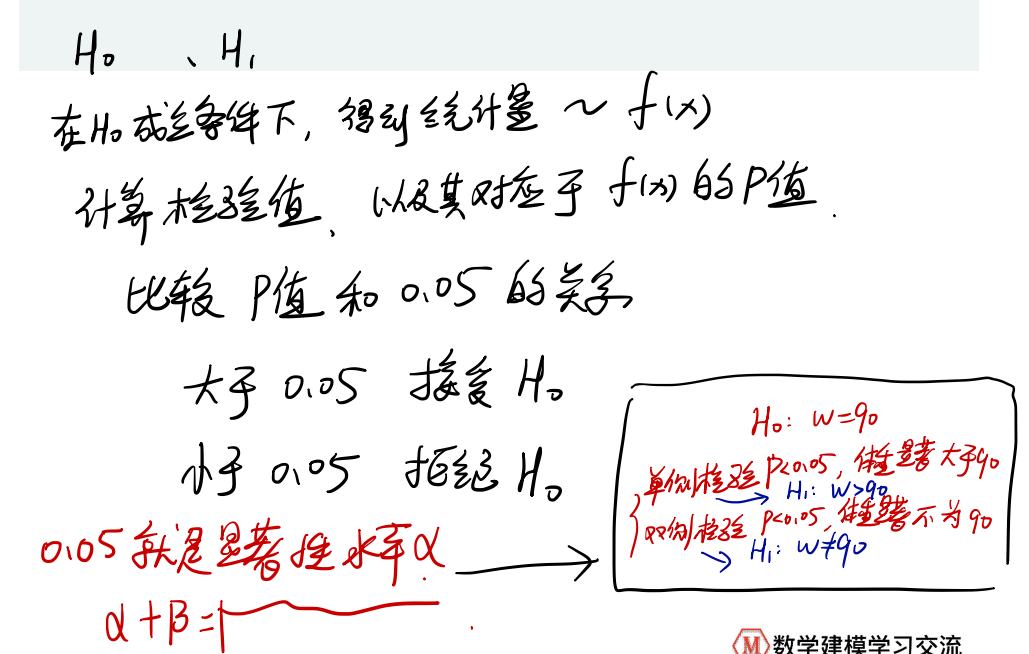 H₀ 、H₁
在H₀成立条件下, 得到统计量 ~ f(x)
计算检验值、以及其对应于 f(x) 的P值.
比较 P值 和 0.05 的关系
大于 0.05 接受 H₀
小于 0.05 拒绝 H₀
0.05 就是显著性水平α.
α+β=1
H₀: W=90
单侧检验 P<0.05, 体重显著大于90
H₁: W>90
双侧检验 P<0.05, 体重显著不为90
H₁: W≠90
M 数学建模学习交流